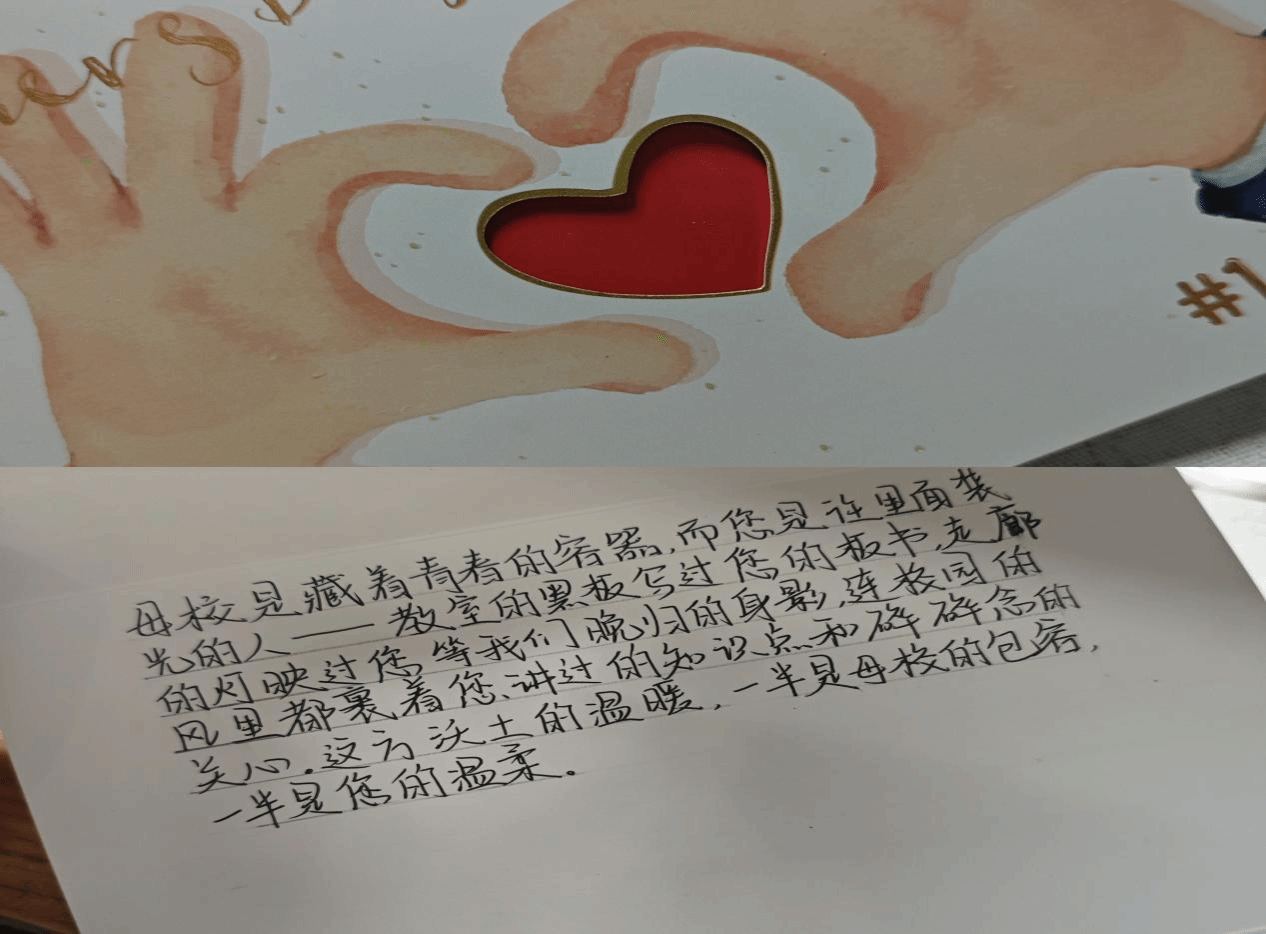 #1
母校是藏着青春的容器,而您是往里面装
光的人——教室的黑板写过您的板书,走廊
的灯映过您等我们晚归的身影,连校园的
风里都裹着您讲过的知识点和碎碎念的
关心。这方沃土的温暖,一半是母校的包容,
一半是您的温柔。